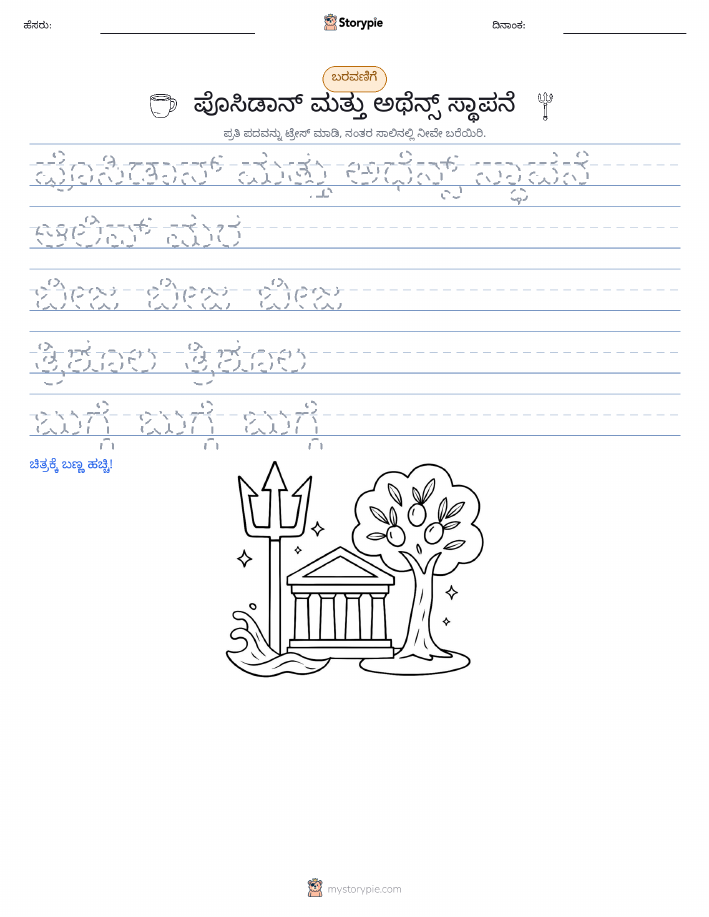 ಹೆಸರು: Storypie ದಿನಾಂಕ:
ಬರವಣಿಗೆ
ಪೊಸಿಡಾನ್ ಮತ್ತು ಅಥೆನ್ಸ್ ಸ್ಥಾಪನೆ
ಪ್ರತಿ ಪದವನ್ನು ಟ್ರೇಸ್ ಮಾಡಿ, ನಂತರ ಸಾಲಿನಲ್ಲಿ ನೀವೇ ಬರೆಯಿರಿ.
ಪೊಸಿಡಾನ್ ಮತ್ತು ಅಥೆನ್ಸ್ ಸ್ಥಾಪನೆ
ಆಲಿವ್ ಮರ
ಬೀಜ ಬೀಜ ಬೀಜ
ತ್ರಿಶೂಲ ತ್ರಿಶೂಲ
ಬುಗ್ಗೆ ಬುಗ್ಗೆ ಬುಗ್ಗೆ
ಚಿತ್ರಕ್ಕೆ ಬಣ್ಣ ಹಚ್ಚಿ!
mystorypie.com